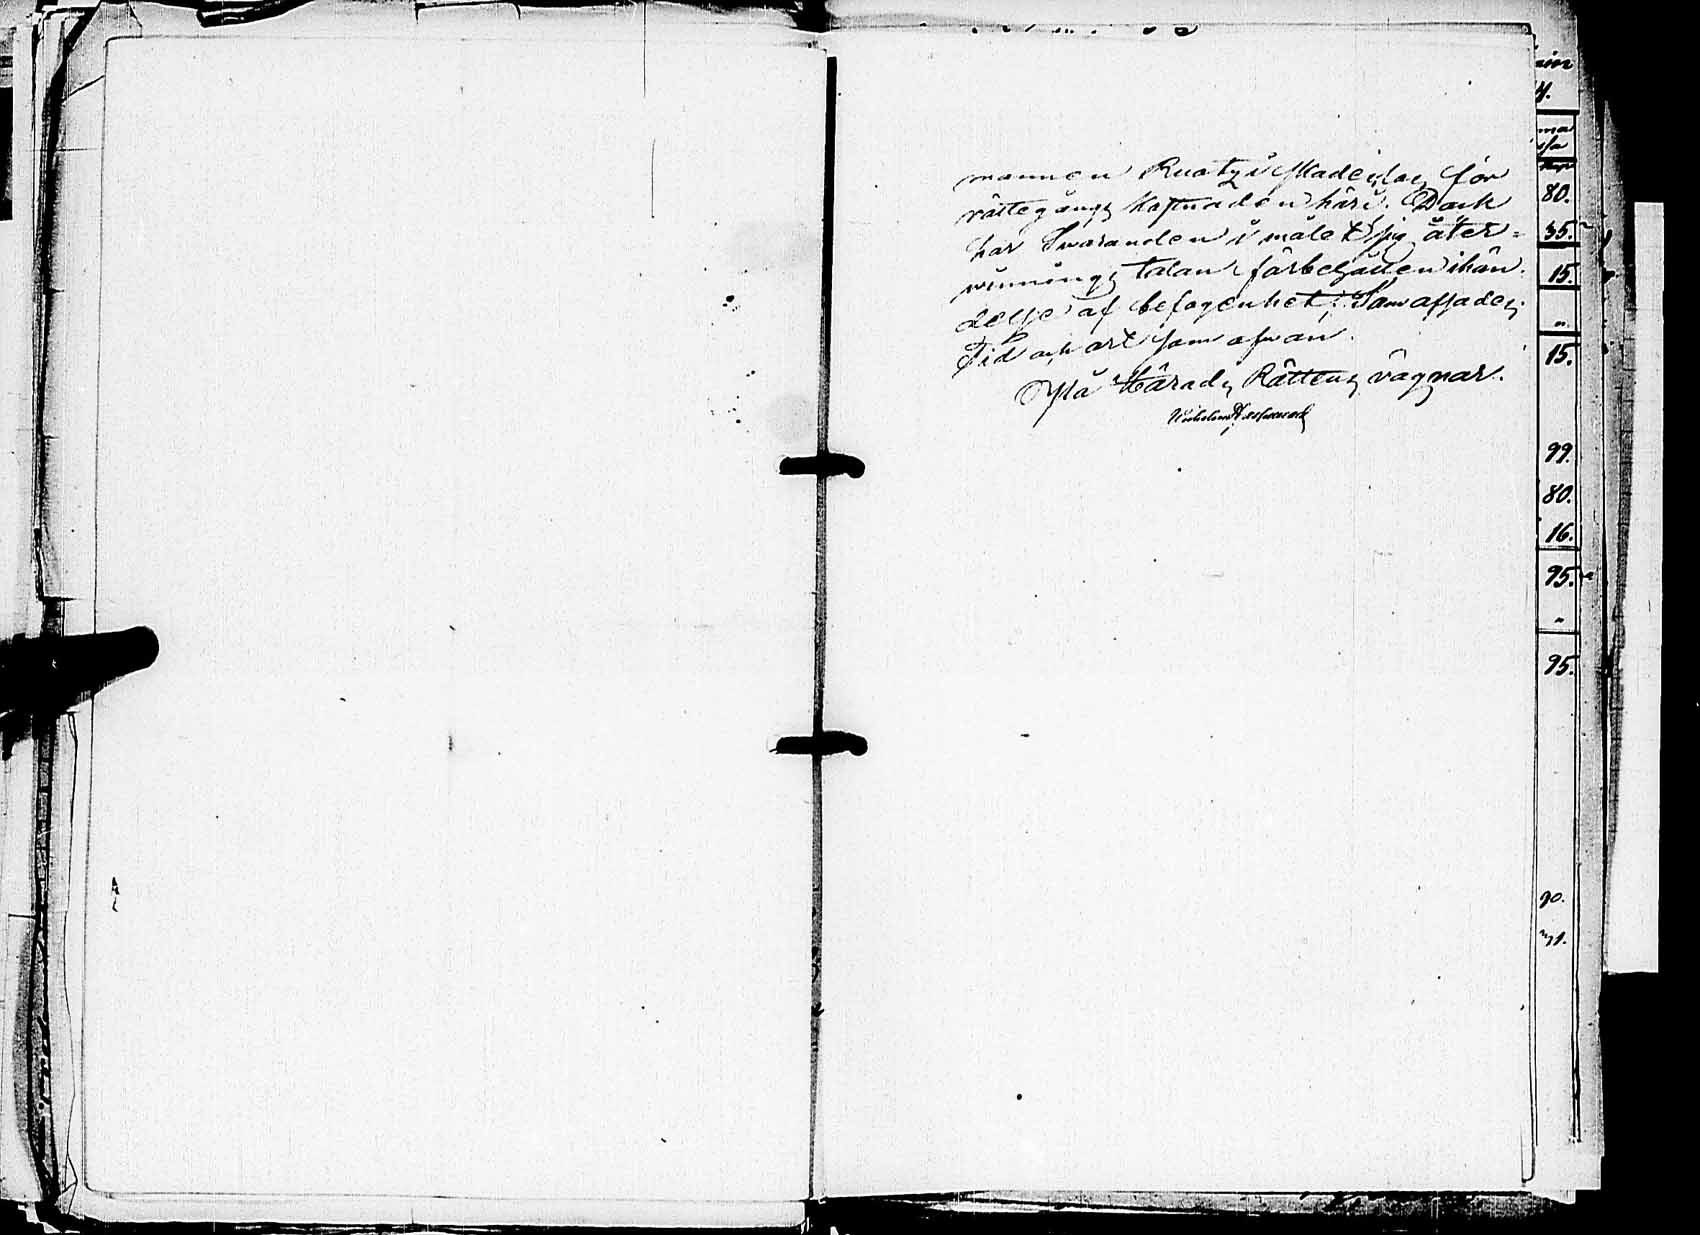 mannen Knaty i skadeslös för
rättegångs kostnaden häri. Dock
har Swaranden i målet sig åter=
winnings talan förbehållen i hän
delse af befogenhet; Som afsades
Tid och ort som ofwan.
På Härads Rättens vägnar:
Wilhelm
80.
35.
15.
"
15.
99.
80.
16.
95.
"
95.
90.
71.